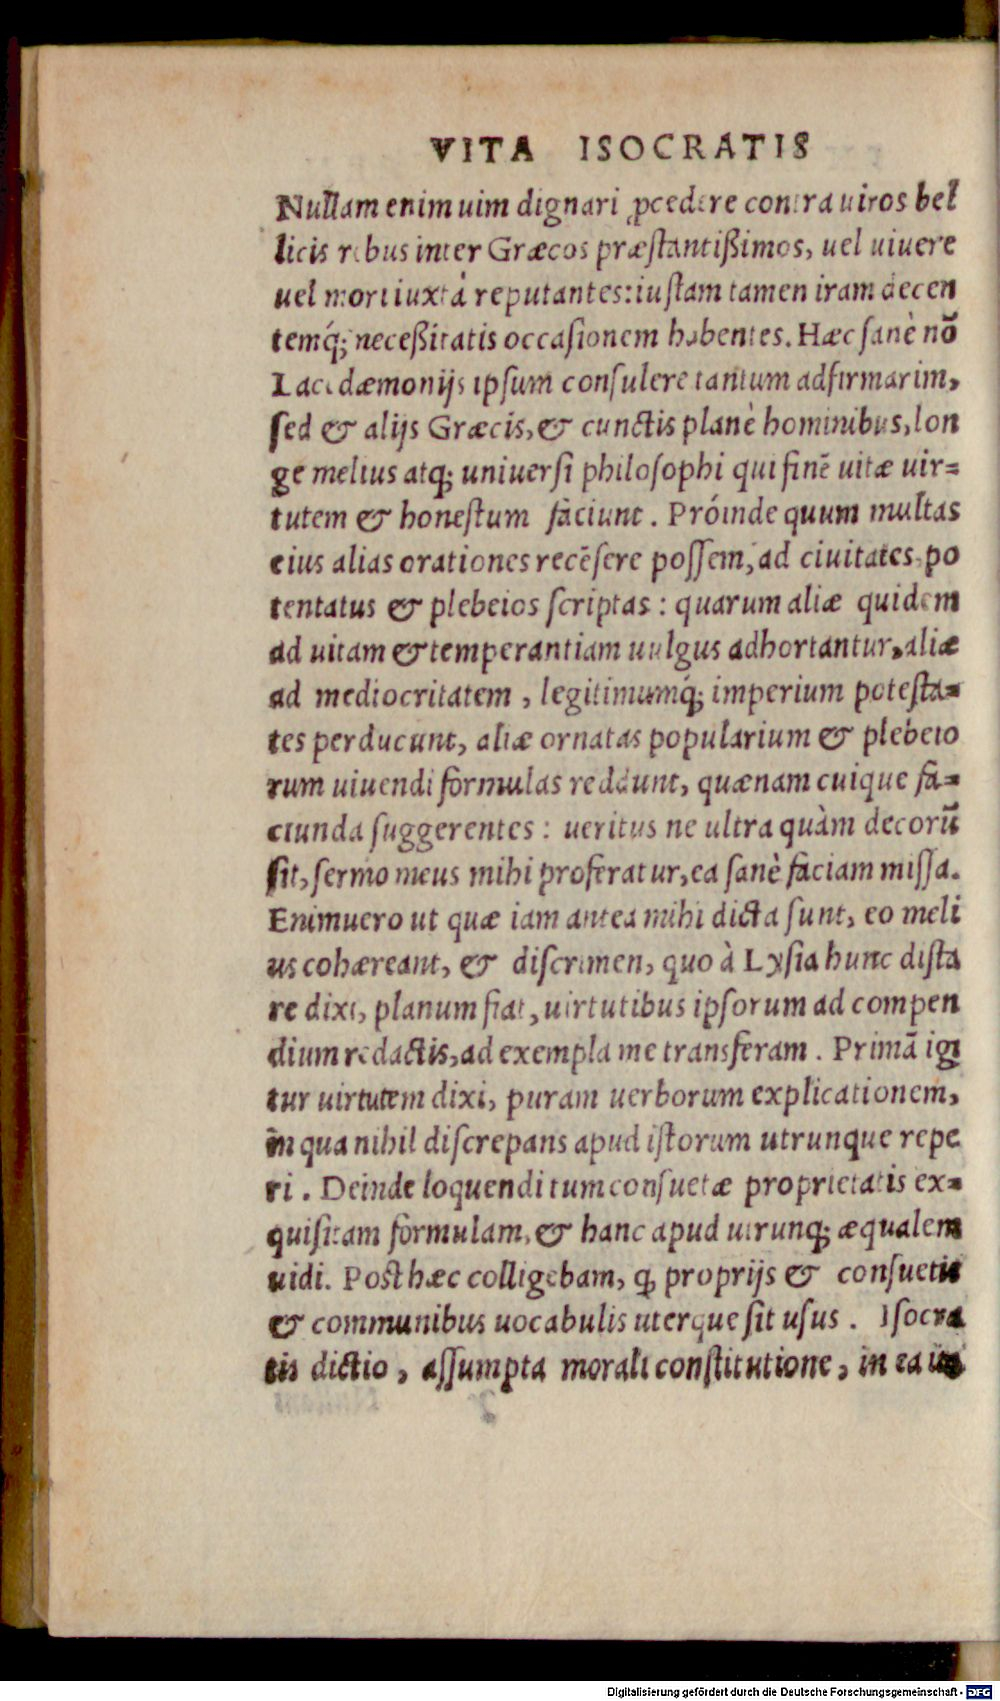 VITA ISOCRATIS
Nullam enim uim dignari ꝓcedere contra uiros bel
licis rebus inter Græcos præſtantißimos, uel uiuere
uel mori iuxtà reputantes: iuſtam tamen iram decen
temq́; neceßitatis occaſionem habentes. Hæc ſanè nō
Lacedæmonijs ipſum conſulere tantum adfirmarim,
ſed & alijs Græcis, & cunctis planè hominibus, lon
ge melius atq; uniuerſi philoſophi qui finē uitæ uir=
tutem & honeſtum faciunt. Próinde quum multas
eius alias orationes recēſere poſſem, ad ciuitates, po
tentatus & plebeios ſcriptas: quarum aliæ quidem
ad uitam & temperantiam uulgus adhortantur, aliæ
ad mediocritatem, legitimumq́; imperium poteſta=
tes perducunt, aliæ ornatas popularium & plebeio
rum uiuendi formulas reddunt, quænam cuique fa=
ciunda ſuggerentes: ueritus ne ultra quàm decorū
ſit, ſermo meus mihi proferatur, ea ſanè faciam miſſa.
Enimuero ut quæ iam antea mihi dicta ſunt, eo meli
us cohæreant, & diſcrimen, quo à Lyſia hunc diſta
re dixi, planum fiat, uirtutibus ipſorum ad compen
dium redactis, ad exempla me transferam. Primā igi
tur uirtutem dixi, puram uerborum explicationem,
in qua nihil diſcrepans apud iſtorum utrunque repe
ri. Deinde loquendi tum conſuetæ proprietatis ex=
quiſitam formulam, & hanc apud utrunq; æqualem
uidi. Poſt hæc colligebam, ꝙ proprijs & conſuetis
& communibus uocabulis uterque ſit uſus. Iſocra
tis dictio, aſſumpta morali conſtitutione, in ea
Digitalisierung gefördert durch die Deutsche Forschungsgemeinschaft - DFG